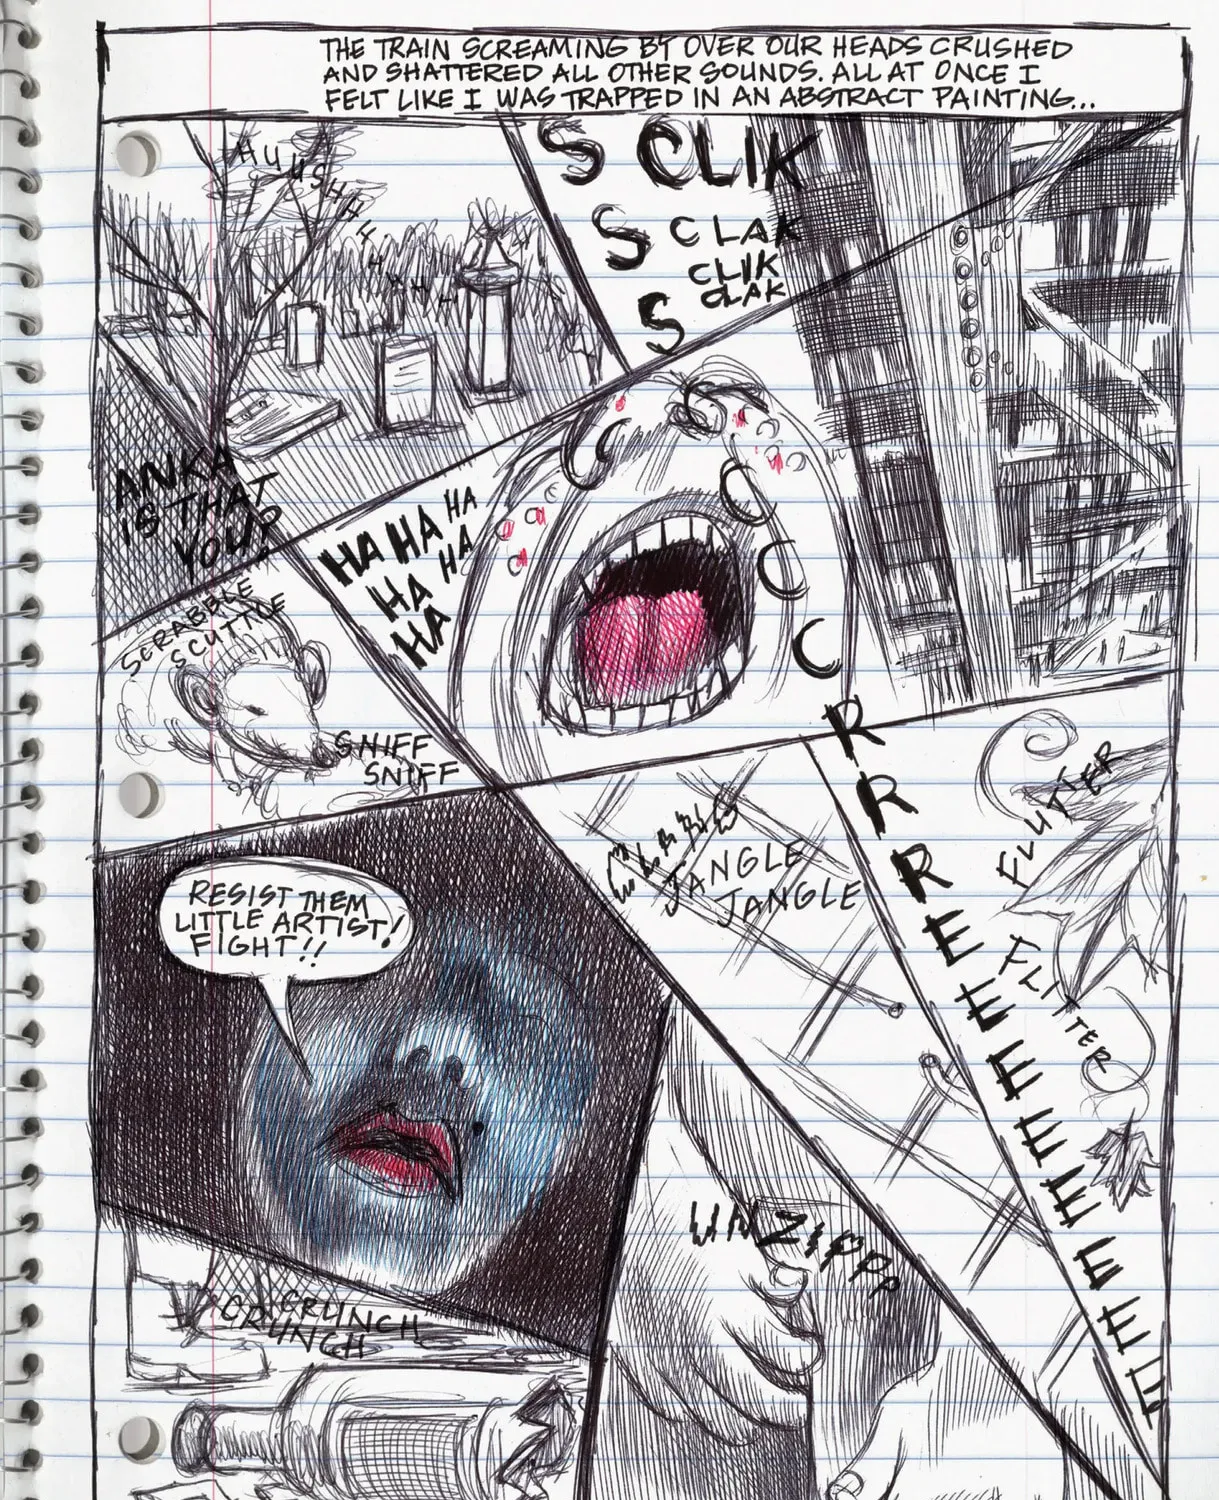 THE TRAIN SCREAMING BY OVER OUR HEADS CRUSHED
AND SHATTERED ALL OTHER SOUNDS. ALL AT ONCE I
FELT LIKE I WAS TRAPPED IN AN ABSTRACT PAINTING...
HUUSHHHHHHHH
S CLIK
S CLAK
CLIK
CLAK
S
ANKA
IS THAT
YOU?
HA HA HA
HA HA
HA
SCCCCCCRRRREEEEEEEEE
SCRABBLE
SCUTTLE
SNIFF
SNIFF
CLANG
JANGLE
JANGLE
FLUTTER
FLITTER
RESIST THEM
LITTLE ARTIST!
FIGHT!!
UNZIPPP
CRUNCH
CRUNCH